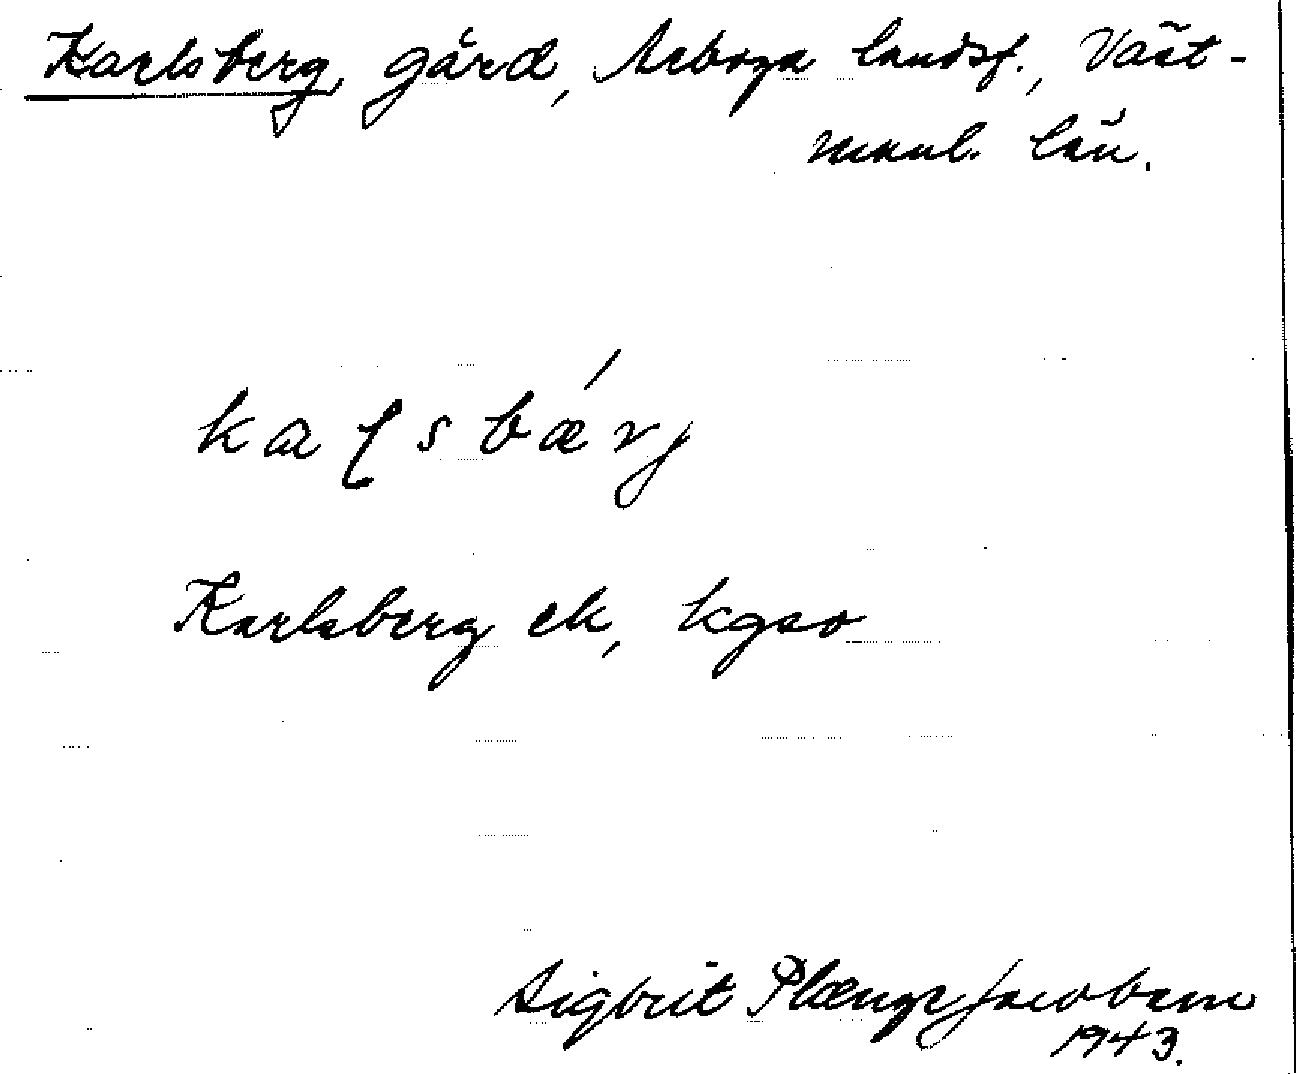 Karlsberg, gård, Arboga landsf., Väst-
manl. län.
kaɽsbǽrj
Karlsberg ek, kgso
Sigbrit Plænge Jacobson
1943.